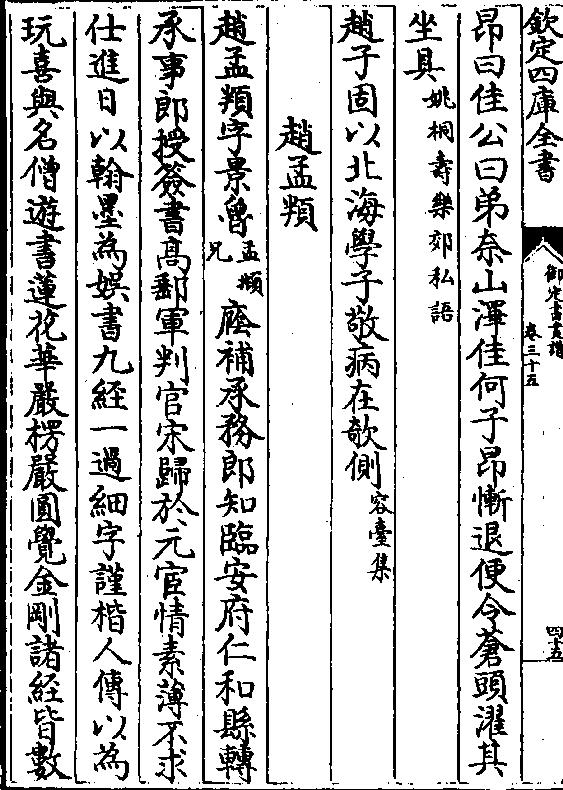 欽定四庫全書
御定書畫譜
卷三十五
四十五
昂曰佳公曰弟奈山澤佳何子昂慚退便令蒼頭濯其
坐具姚桐壽樂郊私語
趙子固以北海學子敬病在欹側容臺集
趙孟頖
趙孟頖字景魯孟頫兄廕補承務郎知臨安府仁和縣轉
承事郎授簽書高郵軍判官宋歸於元宦情素薄不求
仕進日以翰墨為娛書九經一過細字謹楷人傳以為
玩喜與名僧遊書蓮花華嚴楞嚴圓覺金剛諸經皆數